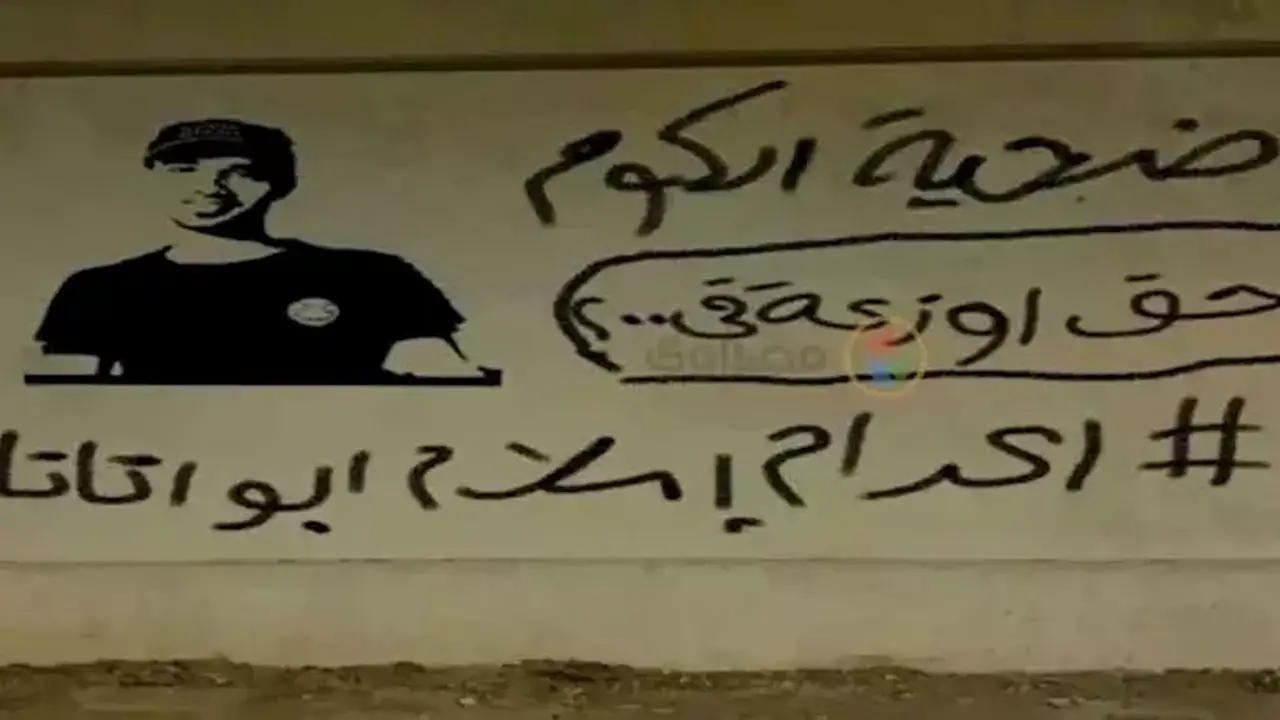 ضحية الكوم
حق اوزعة في..؟
# اكرام إسلام ابو اتاتا
مصراوي